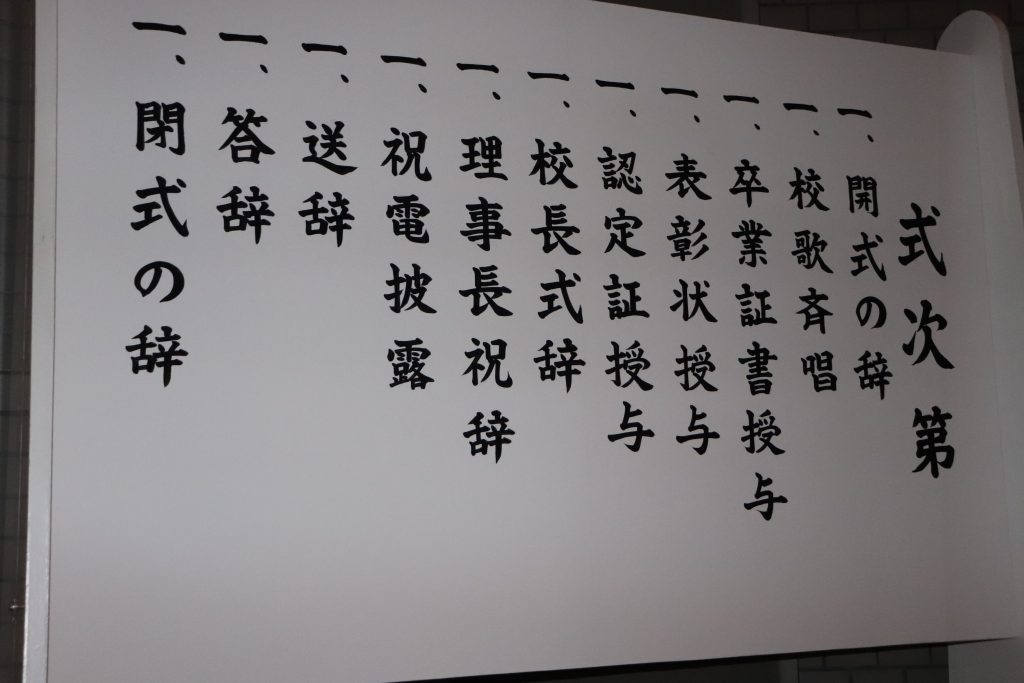 式次第
一、開式の辞
一、校歌斉唱
一、卒業証書授与
一、表彰状授与
一、認定証授与
一、校長式辞
一、理事長祝辞
一、祝電披露
一、送辞
一、答辞
一、閉式の辞